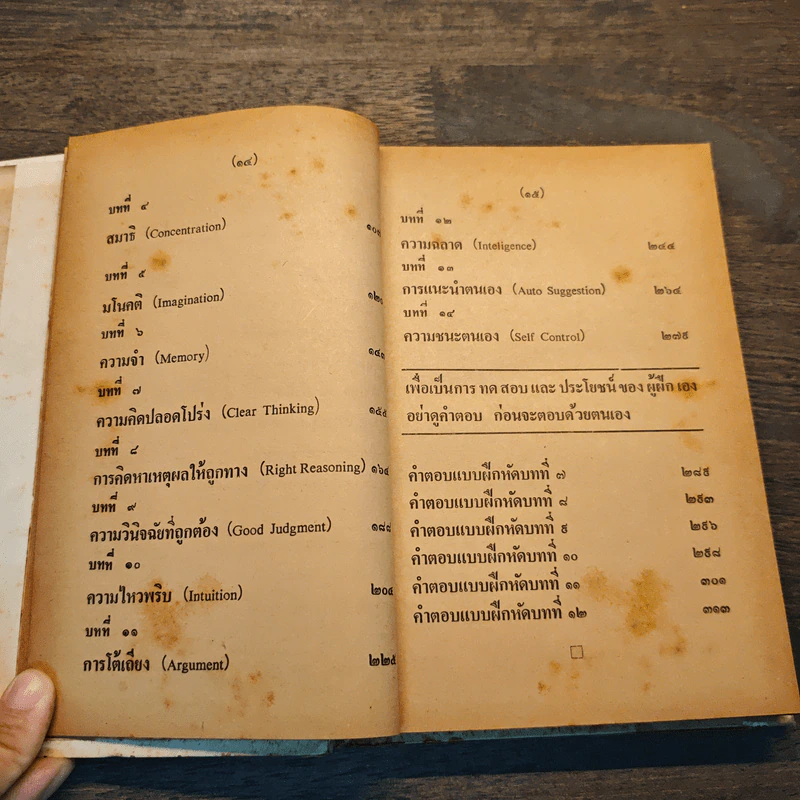 (๑๔)
บทที่ ๔
สมาธิ (Concentration)
บทที่ ๕
มโนคติ (Imagination)
บทที่ ๖
ความจำ (Memory)
บทที่ ๗
ความคิดปลอดโปร่ง (Clear Thinking) ๑๕๕
บทที่ ๘
การคิดหาเหตุผลให้ถูกทาง (Right Reasoning) ๑๖๔
บทที่ ๙
ความวินิจฉัยที่ถูกต้อง (Good Judgment) ๑๘๘
บทที่ ๑๐
ความไหวพริบ (Intuition) ๒๐๔
บทที่ ๑๑
การโต้เถียง (Argument) ๒๒๕
(๑๕)
บทที่ ๑๒
ความฉลาด (Inteligence)
บทที่ ๑๓
การแนะนำตนเอง (Auto Suggestion) ๒๖๔
บทที่ ๑๔
ความชนะตนเอง (Self Control) ๒๗๙
เพื่อเป็นการ ทด สอบ และ ประโยชน์ ของ ผู้ฝึก เอง
อย่าดูคำตอบ ก่อนจะตอบด้วยตนเอง
คำตอบแบบฝึกหัดบทที่ ๗ ๒๘๙
คำตอบแบบฝึกหัดบทที่ ๘ ๒๙๓
คำตอบแบบฝึกหัดบทที่ ๙ ๒๙๖
คำตอบแบบฝึกหัดบทที่ ๑๐ ๒๙๘
คำตอบแบบฝึกหัดบทที่ ๑๑ ๓๐๑
คำตอบแบบฝึกหัดบทที่ ๑๒ ๓๑๓